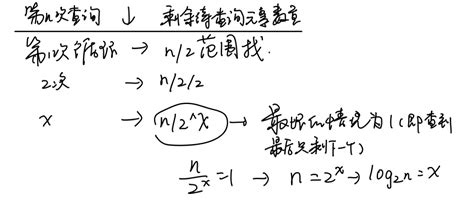 第n次查询 ↓ 剩余待查询元素数量
第1次循环 → n/2 范围找.
2次 → n/2/2
x → n/2^x → 最坏的情况为1(即查到
最后只剩下一个)
n/2ˣ=1 → n=2ˣ → log₂n=x